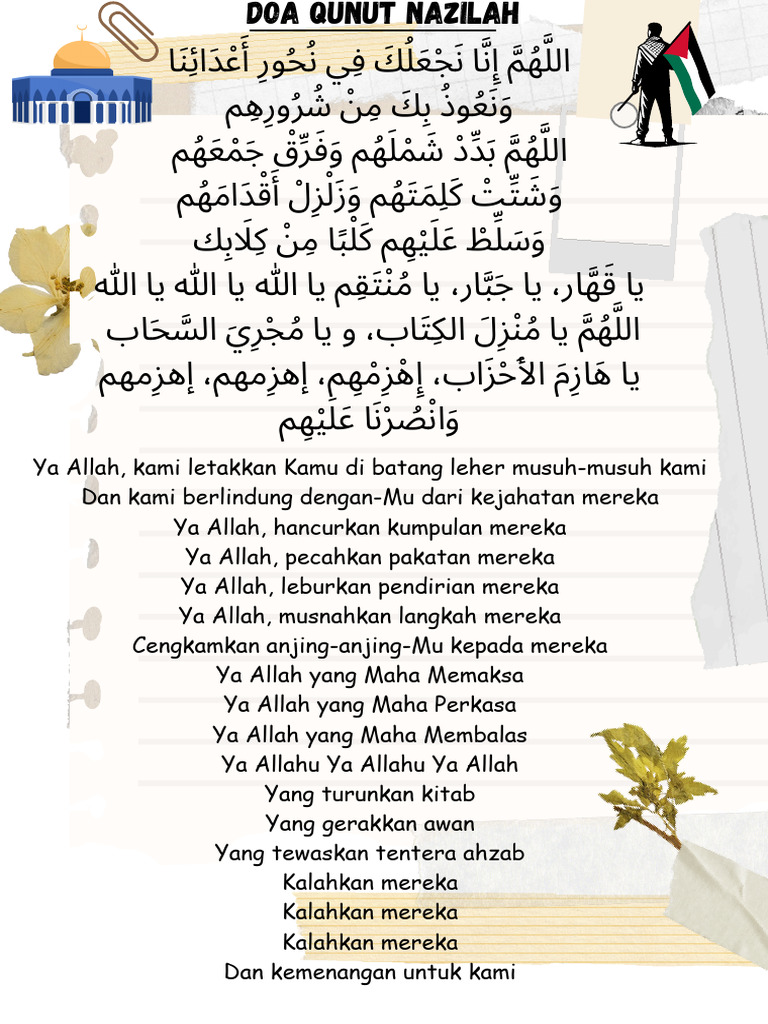 DOA QUNUT NAZILAH
اللَّهُمَّ إِنَّا نَجْعَلُكَ فِي نُحُورِ أَعْدَائِنَا
وَنَعُوذُ بِكَ مِنْ شُرُورِهِم
اللَّهُمَّ بَدِّدْ شَمْلَهُم وَفَرِّقْ جَمْعَهُم
وَشَتِّتْ كَلِمَتَهُم وَزَلْزِلْ أَقْدَامَهُم
وَسَلِّطْ عَلَيْهِم كَلْبًا مِنْ كِلَابِك
يا قَهَّار، يا جَبَّار، يا مُنْتَقِم يا الله يا الله يا الله
اللَّهُمَّ يا مُنْزِلَ الكِتَاب، و يا مُجْرِيَ السَّحَاب
يا هَازِمَ الأَحْزَاب، إِهْزِمْهِم، إهزِمهم، إهزِمهم
وَانْصُرْنَا عَلَيْهِم
Ya Allah, kami letakkan Kamu di batang leher musuh-musuh kami
Dan kami berlindung dengan-Mu dari kejahatan mereka
Ya Allah, hancurkan kumpulan mereka
Ya Allah, pecahkan pakatan mereka
Ya Allah, leburkan pendirian mereka
Ya Allah, musnahkan langkah mereka
Cengkamkan anjing-anjing-Mu kepada mereka
Ya Allah yang Maha Memaksa
Ya Allah yang Maha Perkasa
Ya Allah yang Maha Membalas
Ya Allahu Ya Allahu Ya Allah
Yang turunkan kitab
Yang gerakkan awan
Yang tewaskan tentera ahzab
Kalahkan mereka
Kalahkan mereka
Kalahkan mereka
Dan kemenangan untuk kami